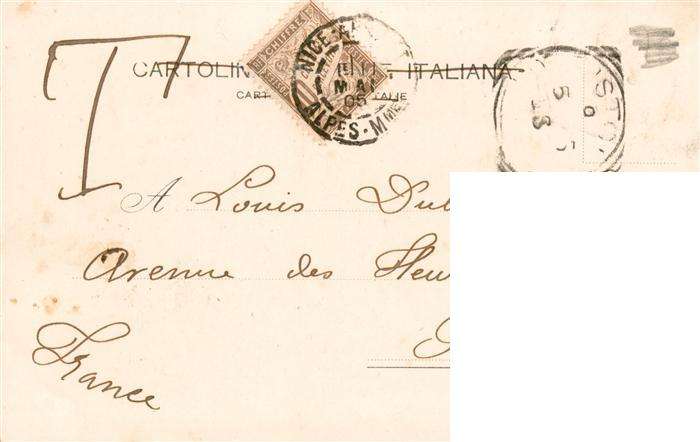 T
CARTOLIN ITALIANA
CART ALIE
CHIFFRE
NICE
MAI
05
ALPES-MMES
5
A Louis Dub
Avenue des Fleu
France